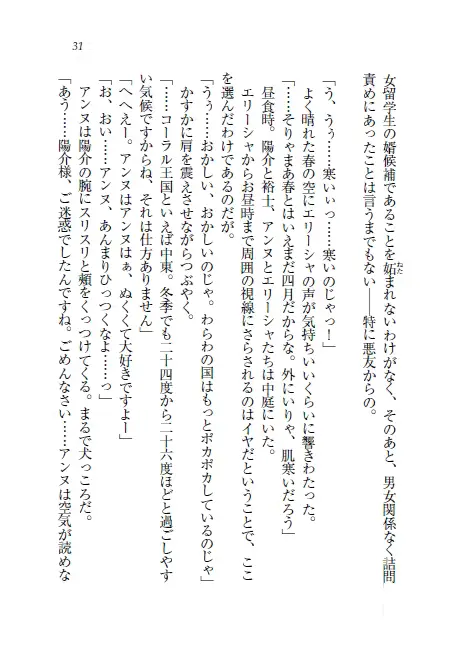 31
女留学生の婿候補であることを妬まれないわけがなく、そのあと、男女関係なく詰問
責めにあったことは言うまでもない――特に悪友からの。
「う、うぅ……寒いぃっ……寒いのじゃっ！」
よく晴れた春の空にエリーシャの声が気持ちいいくらいに響きわたった。
「……そりゃまあ春とはいえまだ四月だからな。外にいりゃ、肌寒いだろう」
昼食時。陽介と裕士、アンヌとエリーシャたちは中庭にいた。
エリーシャからお昼時まで周囲の視線にさらされるのはイヤだということで、ここ
を選んだわけであるのだが。
「うぅ……おかしい、おかしいのじゃ。わらわの国はもっとポカポカしているのじゃ」
かすかに肩を震えさせながらつぶやく。
「……コーラル王国といえば中東。冬季でも二十四度から二十六度ほどと過ごしやす
い気候ですからね、それは仕方ありません」
「へへえー。アンヌはアンヌはぁ、ぬくくて大好きですよー」
「お、おい……アンヌ、あんまりひっつくなよ……っ」
アンヌは陽介の腕にスリスリと頰をくっつけてくる。まるで犬っころだ。
「あう……陽介様、ご迷惑でしたんですね。ごめんなさい……アンヌは空気が読めな